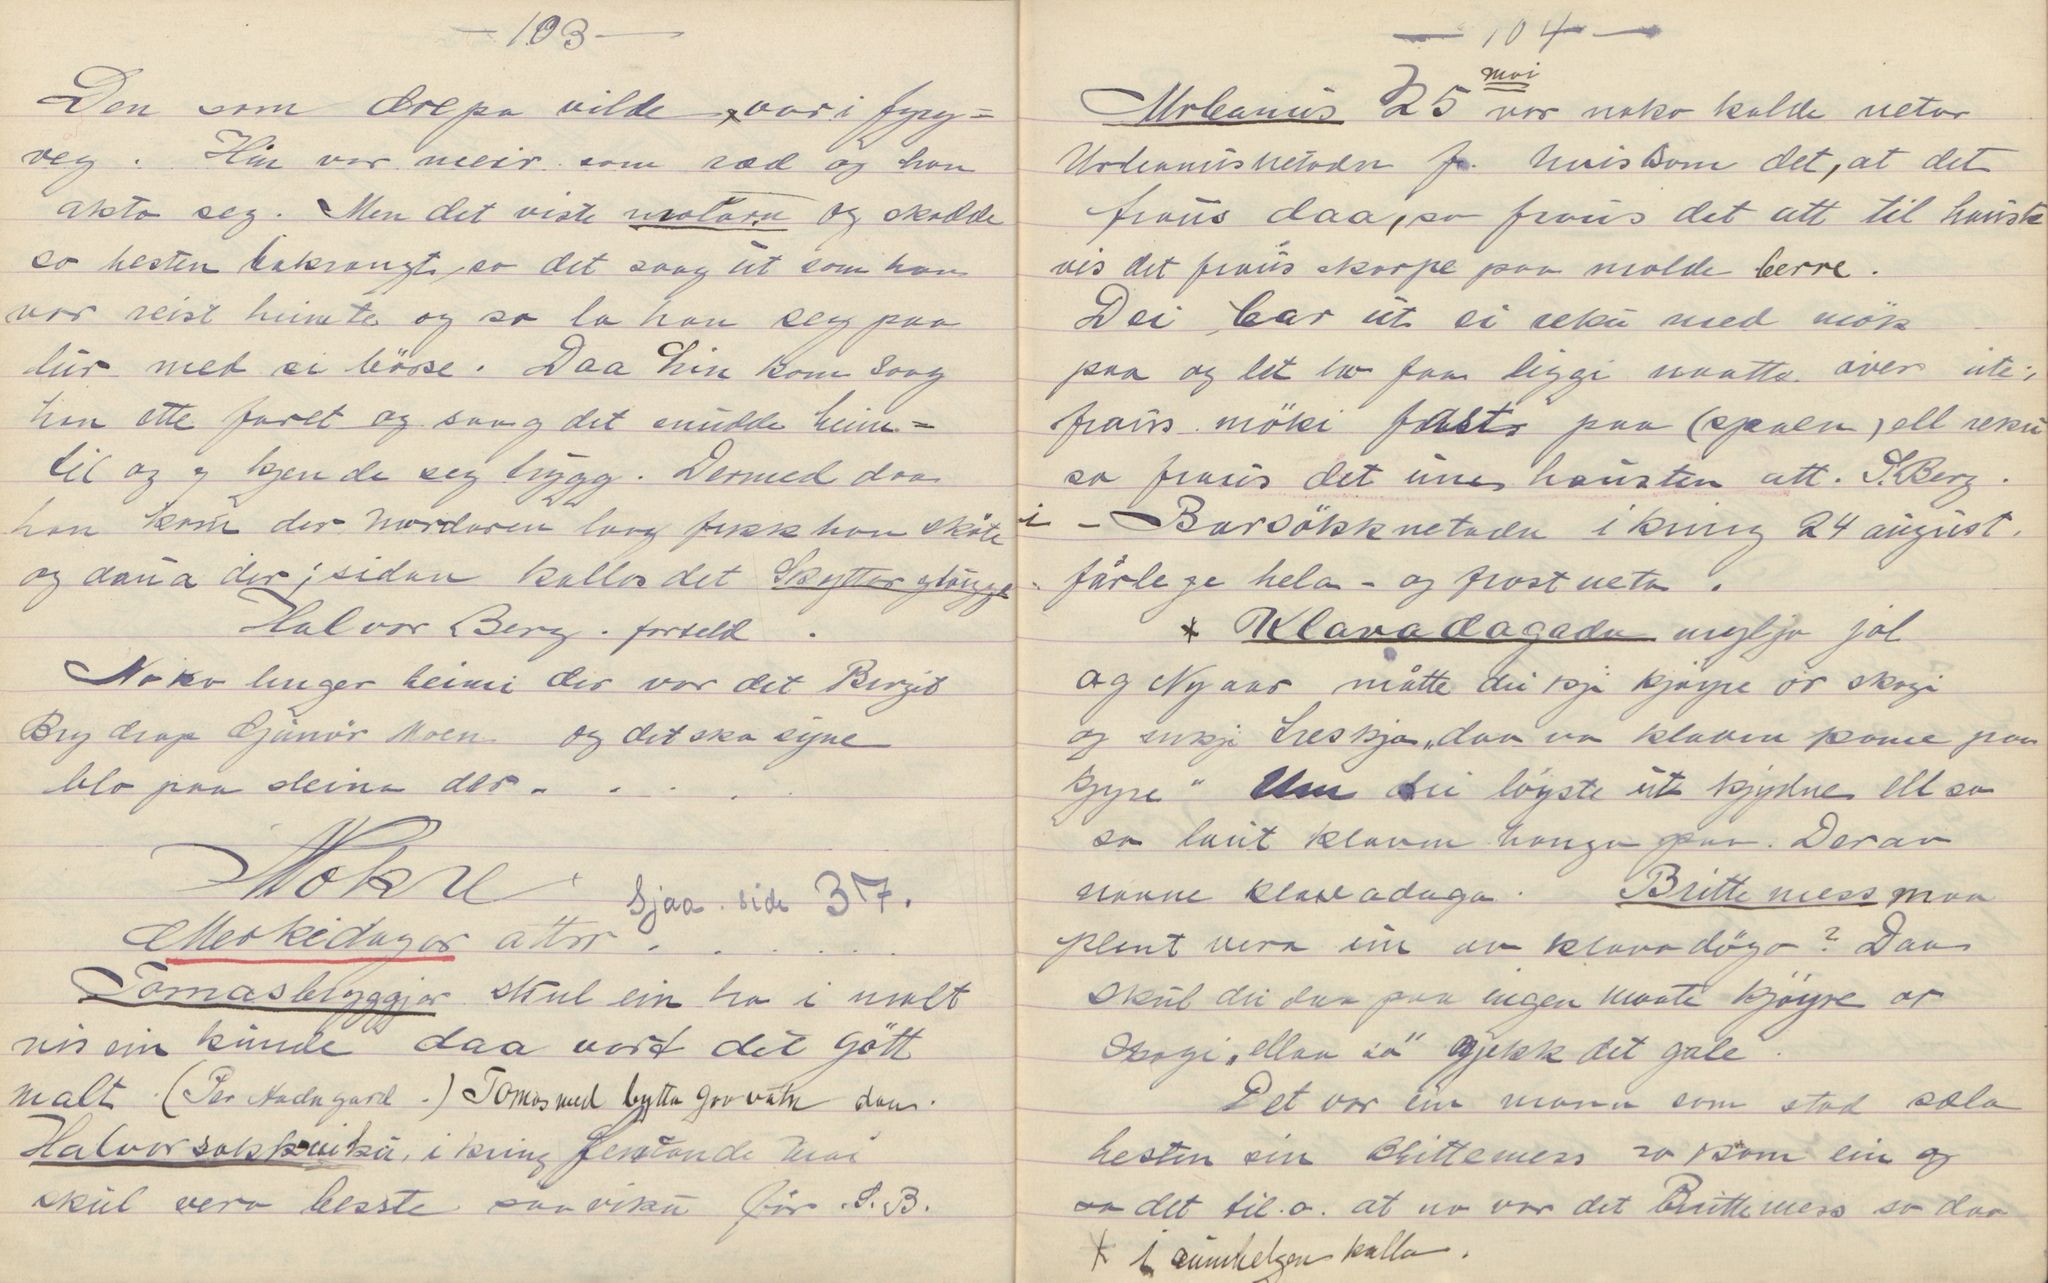 — 103 —
Den som drepa vilde var i fyry=
veg. Hin var meir som ræd og han
akta seg. Men det viste motarn og skodde
so hesten bakvangt, so det saag ut som han
var reist heimte og so la han seg paa
lur med ei börse. Daa hin kom saag
han ette faret og saag det snudde heim=
til og kjende seg trygg. Dermed daa
han kom der nordaren laag fekk han skôte
og daua der; sidan kallas det Skyttarglaugge
Halvor Berg. forteld.
Noko lenger heimi der var det Birgit
Bry drap Gunnar Moen og det ska syne
blo paa steina der. . . . .
Nokre Sjaa side 37.
Merkidagar attr . . . . .
Tomasbryggjar skul ein ha i malt
vis ein kunde daa vart det gôtt
malt. (Per Aadngard.) Tomas med bytta gaa vatn dan.
Halvorsokkviku, i kring femtande mai
skul vera beste saaviku før. S.B.
— 104 —
Urbanus 25 mai var noko kalde netar
Urbanusnetadn f. hvis som det, at det
fraus daa, so fraus det att til haust
vis det fraus skorpe paa molde berre.
Dei bar ut ei reku med mök
paa og let ho faa liggi naatta over ute;
fraus möki fast paa (spaen) ell reku
so fraus det une hausten att. S. Berg.
i - Barsökknetadn i kring 24 august.
fårlege hela- og frostneta.
* Klavadagadn mylja jol
og Nyaar måtte dei kji kjøyre or skogi
og inkji treskja, „daa va klaven kome paa
kjyre" Um dei löyste ut kjydne ell so
so laut klaven hange paa. Derav
navne klavadaga. Brittemess maa
plent vera ein av klavadögo? Daa
skul dei daa paa ingen maate kjöyre or
skogi, „ellaa so" gjekk det gale.
Det var ein mann som stod sæla
hesten sin Brittemess so kom ein og
sa det til.o. at no var det Brittemess so daa
* i rumhelgen kalla.